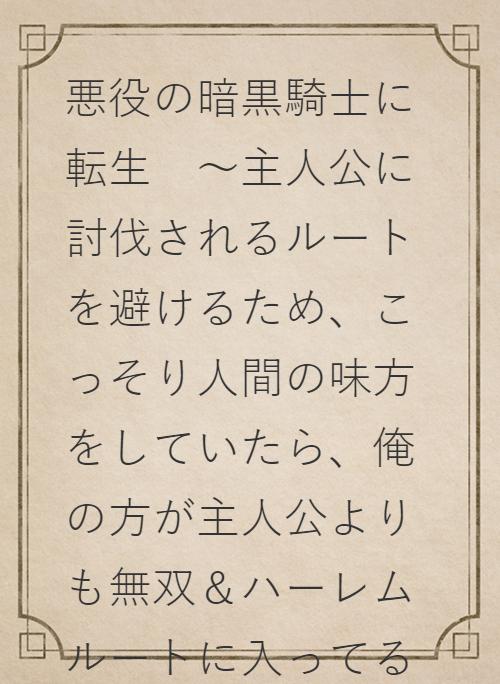 悪役の暗黒騎士に
転生　～主人公に
討伐されるルート
を避けるため、こ
っそり人間の味方
をしていたら、俺
の方が主人公より
も無双＆ハーレム
ルートに入ってる